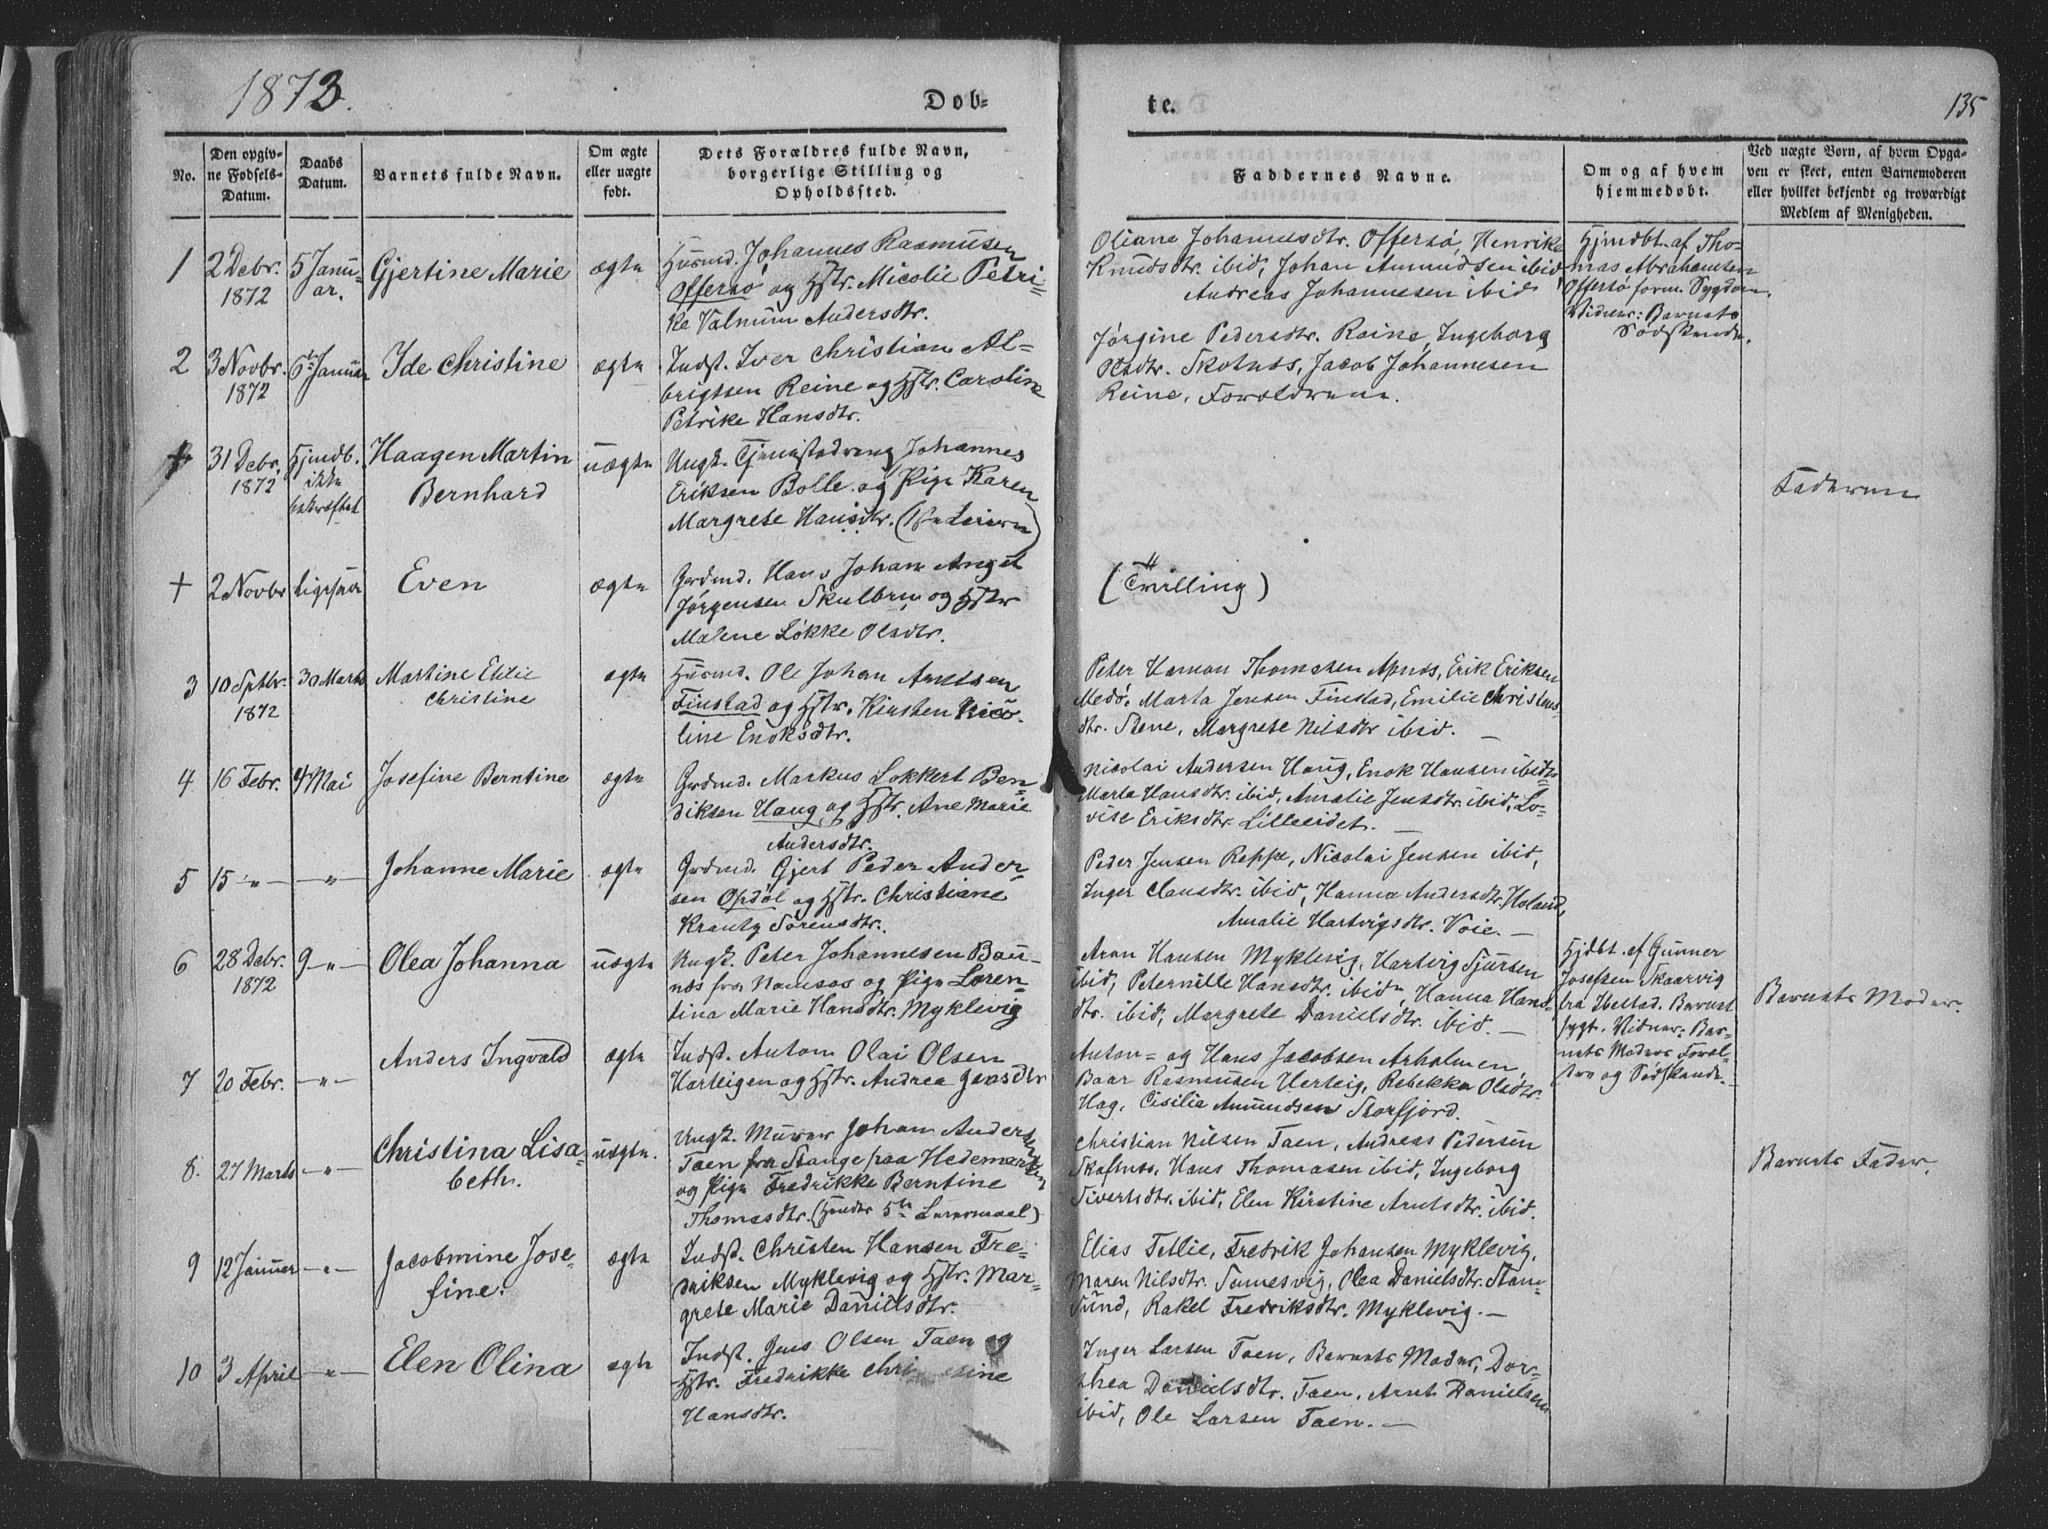 1873.
Døb-
te.
135
No.
Den opgiv-
ne Fødsels-
Datum.
Daabs
Datum.
Barnets fulde Navn.
Om ægte
eller uægte
født.
Dets Forældres fulde Navn,
borgerlige Stilling og
Opholdssted.
Faddernes Navne.
Om og af hvem
hjemmedøbt.
Ved uægte Børn, af hvem Opga-
ven er skeet, enten Barnemoderen
eller hvilket bekjendt og troværdigt
Medlem af Menigheden.
1
2 Debr.
1872
5 Janu-
ar.
Gjertine Marie
ægte
Husmd. Johannes Rasmusen
Offersø og Hstr. Nicolie Petri-
ke Valnum Andersdtr.
Oliane Johannesdtr. Offersø, Henrike
Knudsdtr. ibid, Johan Amundsen ibid,
Andreas Johannesen ibid
Hjmdbt. af Tho-
mas Abrahamsen
Offersø form. Sygdom.
Vidner: Barnets
Sødskende.
2
3 Novbr.
1872
6te Januar
Ide Christine
ægte
Indst. Iver Christian Al-
brigtsen Reine og Hstr. Caroline
Petrike Hansdtr.
Jørgine Pedersdtr. Reine, Ingeborg
Olsdtr. Skotnes, Jacob Johannesen
Reine, Forældrene.
+
31 Debr.
1872
Hjmdb.
ikke
bekræftet
Haagen Martin
Bernhard
uægte
Ungk. Tjenestedreng Johannes
Eriksen Bolle og Pige Karen
Margrete Hansdtr.
Faderen
+
2 Novbr
Even
ægte
Grdmd. Hans Johan Angel
Jørgensen Skulbru og Hstr
Malene Løkke Olsdtr.
(Tvilling)
3
10 Septbr.
1872
30 Marts
Martine Elilie
Christine
ægte
Husmd. Ole Johan Arntsen
Finstad og Hstr. Kirsten Nico-
line Enoksdtr.
Peter Hamon Thomesen Apnæs, Erik Eriksen
Medø, Marta Jensen Finstad, Emilie Christens-
dtr. Stene, Margrete Nilsdtr ibid. —
4
16 Febr.
4 Mai
Josefine Berntine
ægte
Grdmd. Markus Lokkert Ben-
diksen Haug og Hstr. Ane Marie
Andersdtr.
Nicolai Andersen Haug, Enok Hansen ibid,
Marta Hansdtr. ibid, Amalie Jensdtr. ibid, Lo-
vise Eriksdtr. Lilleeidet. —
5
15 —"—
—"—
Johanne Marie
ægte
Grdmd. Gjert Peder Ander-
sen Opdøl og Hstr. Christiane
Krantz Sørensdtr.
Peder Jensen Reppe, Nicolai Jensen ibid,
Inger Clausdtr. ibid, Hanna Andersdtr. Holand,
Amalie Hartvigsdtr. Voie. —
6
28 Debr.
1872
9 —"—
Olea Johanna
uægte
Ungk. Peter Johannesen Bau-
næs fra Namsos og Pige Loren-
tina Marie Hansdtr. Myklevig
Aron Hansen Myklevig, Hartvig Sjursen
ibid, Peternille Hansdtr. ibid, Hanna Hans-
dtr. ibid, Margrete Danielsdtr. ibid. —
Hjdbt. af Gunner
Josefsen Skaarvig
fra Ibestad. Barnet
sygt. Vidner: Bar-
nets Moders Foræl-
dre og Sødskende.
Barnets Moder.
7
20 Febr.
—"—
Anders Ingvald
ægte
Indst. Anton Olai Olsen
Harteigen og Hstr. Andrea Jensdtr
Anton- og Hans Jacobsen Arholmen,
Baar Rasmusen Herteig, Rebekka Olsdtr.
Hag, Cisilie Amundsen Storfjord.
8.
27 Marts
—"—
Christina Lisa-
beth.
uægte.
Ungk. Murer Johan Andersen
Taen fra Stange paa Hedemarken
og Pige Fredrikke Berntine
Thomasdtr. (Hendes 5te Leiermaal)
Christian Nilsen Taen, Andreas Pedersen
Skaftnæs, Hans Thomasen ibid, Ingeborg
Sivertsdtr. ibid, Elen Kirstine Arntsdtr. ibid.
Barnets Fader.
9
12 Januar
—"—
Jacobmine Jose-
fine.
ægte
Indst. Christen Hansen Fre-
driksen Myklevig og Hstr. Mar-
grete Marie Danielsdtr.
Elias Tetlie, Fredrik Johansen Myklevig,
Maren Nilsdtr. Sennesvig, Olea Danielsdtr. Stam-
sund, Rakel Fredriksdtr. Myklevig. —
10
3 April
—"—
Elen Olina
ægte
Indst. Jens Olsen Taen og
Hstr. Fredrikke
Hansdtr.
Inger Larsen Taen, Barnets Moder, Dor-
thea Danielsdtr. Taen, Arnt Danielsen
ibid, Ole Larsen Taen. —